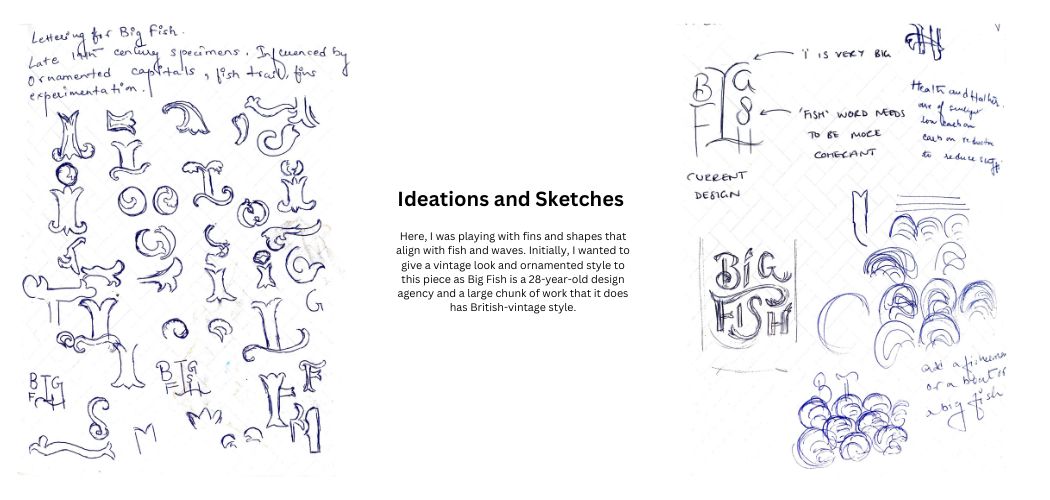 Lettering for Big Fish.
Late 19th century specimens. Influenced by
Ornamented capitals, fish trail, fins
experimentation.
BIG
F
BIG
FISH
G
F
Ideations and Sketches
Here, I was playing with fins and shapes that
align with fish and waves. Initially, I wanted to
give a vintage look and ornamented style to
this piece as Big Fish is a 28-year-old design
agency and a large chunk of work that it does
has British-vintage style.
'I' IS VERY BIG
BIG
F
H
'FISH' WORD NEEDS
TO BE MORE
COHERANT
CURRENT
DESIGN
Health and
low carbon
to reduce
BiG
FISH
add a fisherman
or a boat or
a big fish
B I